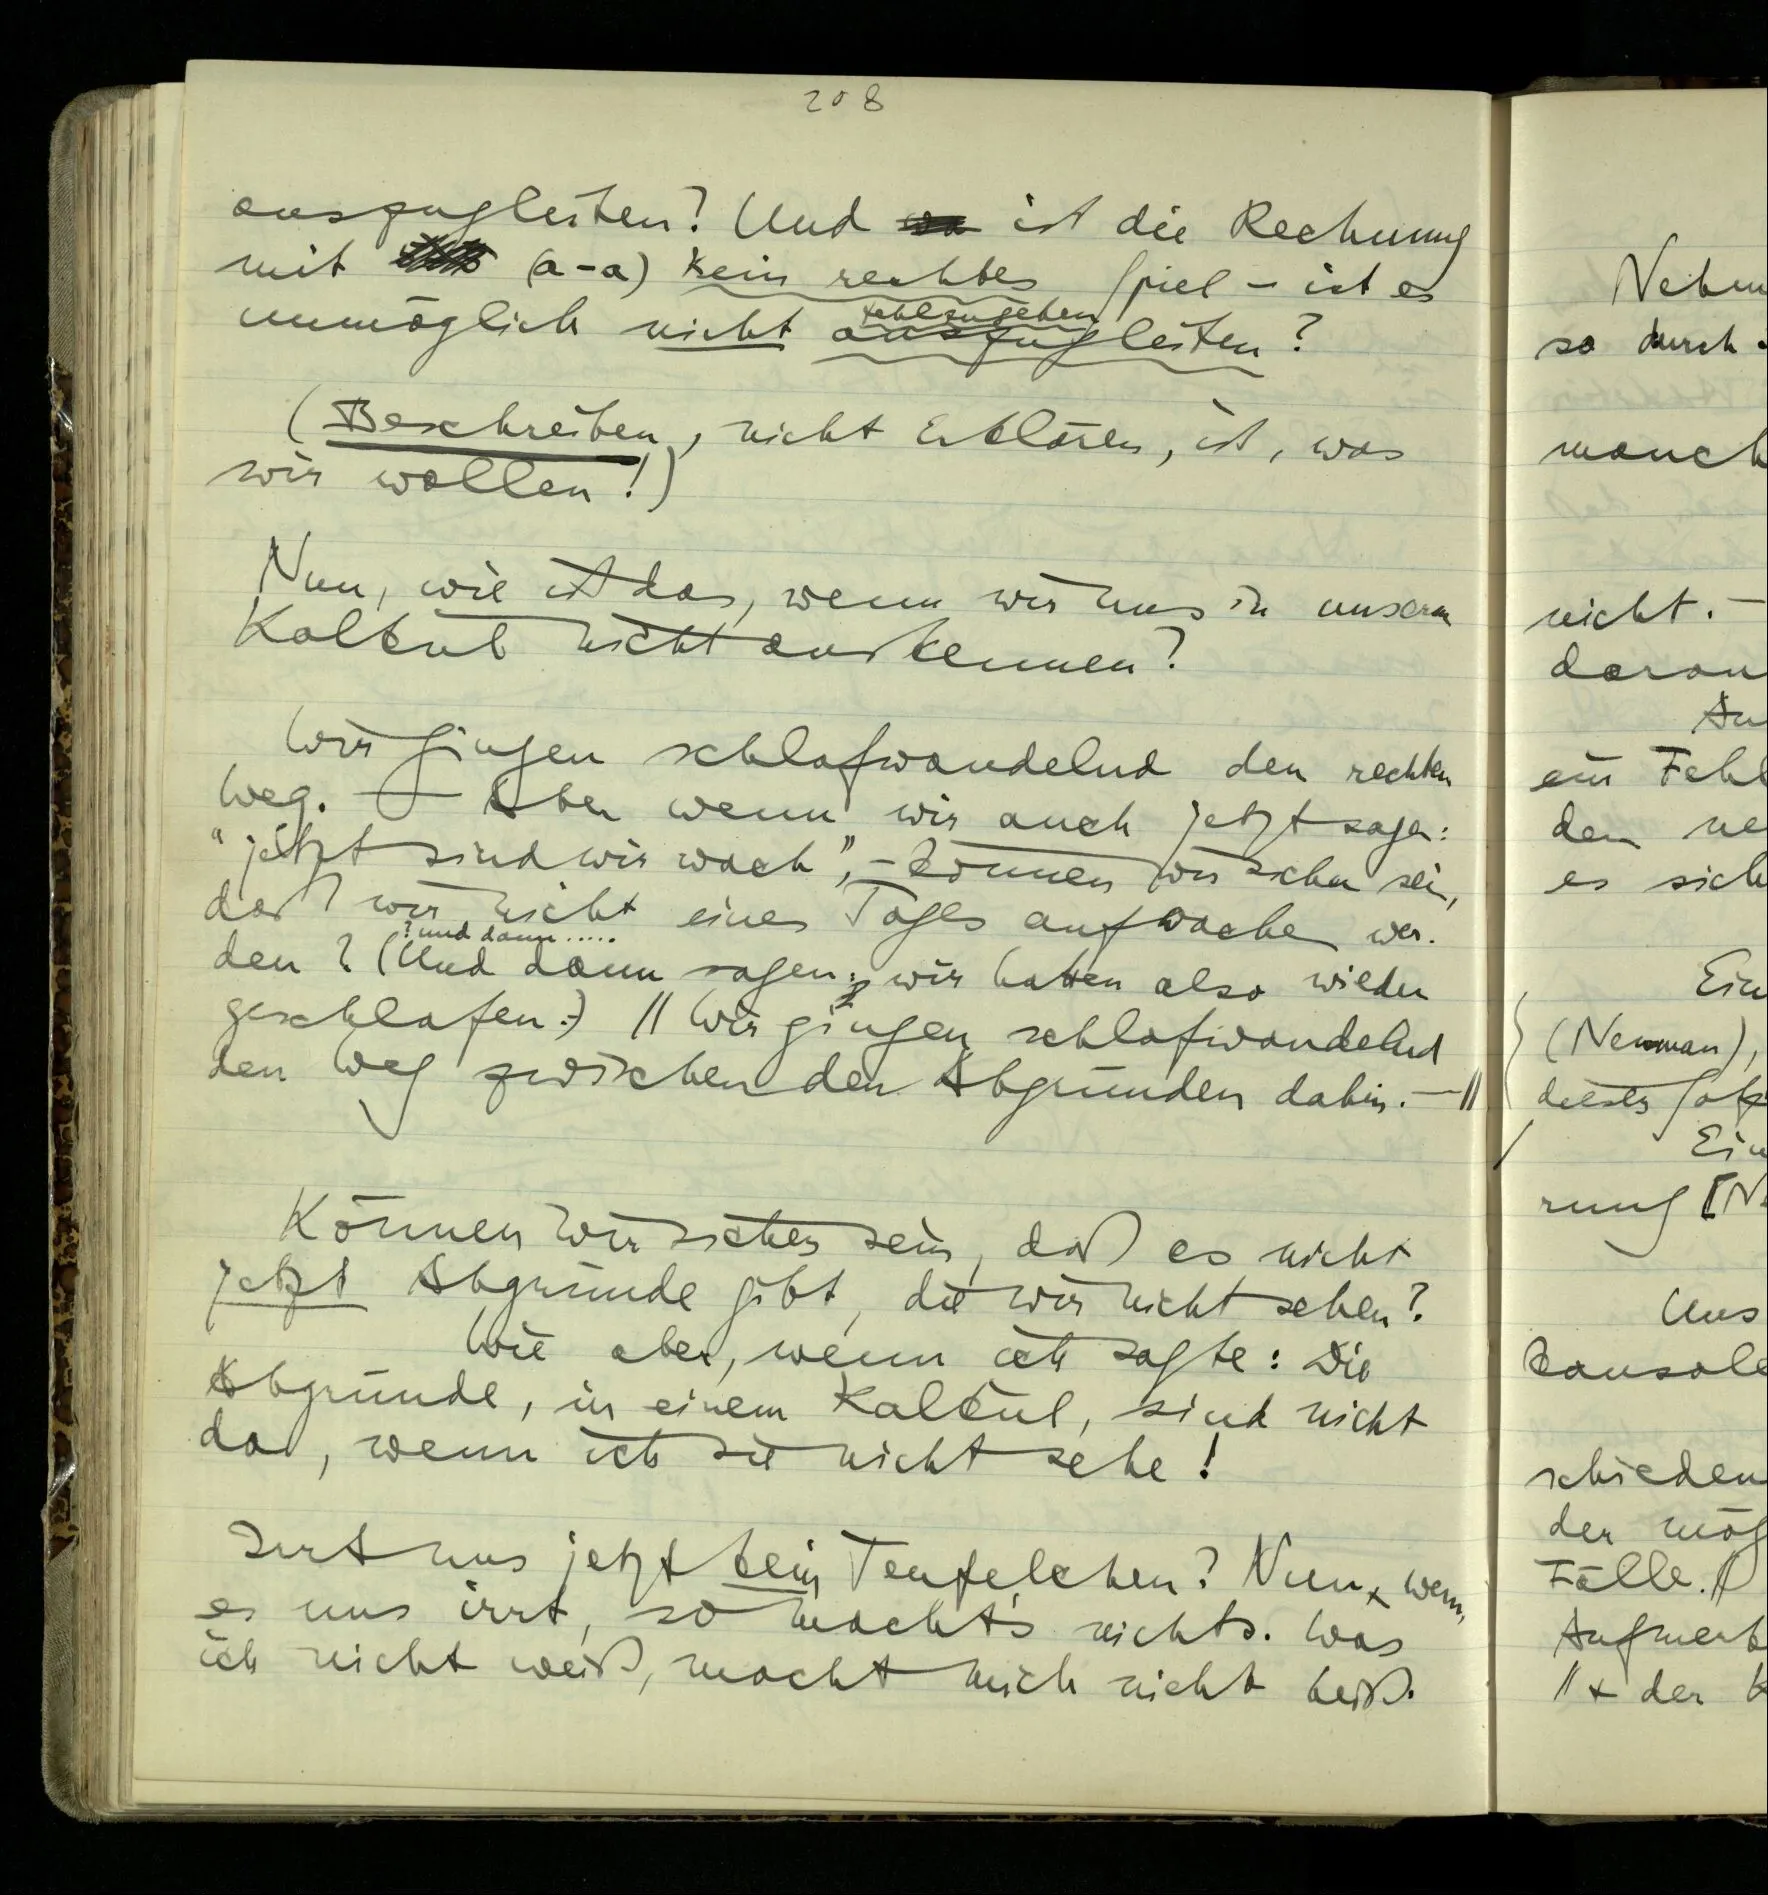 208
auszugleiten? Und ist die Rechnung
mit (a-a) kein rechtes Spiel – ist es
fehlzugehen
unmöglich nicht auszugleiten?
(Beschreiben, nicht Erklären, ist, was
wir wollen!)
Nun, wie ist das, wenn wir uns in unserm
Kalkül nicht auskennen?
Wir gingen schlafwandelnd den rechten
Weg. — Aber wenn wir auch jetzt sagen:
"jetzt sind wir wach", – können wir sicher sein,
daß wir nicht eines Tages aufwachen wer-
? und dann .....
den? (Und dann sagen: wir hatten also wieder
geschlafen.) // Wir gingen schlafwandelnd
den Weg zwischen den Abgründen dahin. — //
Können wir sicher sein, daß es nicht
jetzt Abgründe gibt, die wir nicht sehen?
Wie aber, wenn ich sagte: Die
Abgründe, in einem Kalkül, sind nicht
da, wenn ich sie nicht sehe!
Irrt uns jetzt kein Teufelchen? Nun, wenn
es uns irrt, so macht's nichts. Was
ich nicht weiß, macht mich nicht heiß.
Nehm
so durch
manch
nicht. –
daran
An
ein Fehl
den ne
es sich
Ein
(Newman),
dieser Satz
Ein
rung [Ne
Uns
kausale
schieden
der mög
Fälle. //
Aufmerk
// + der K